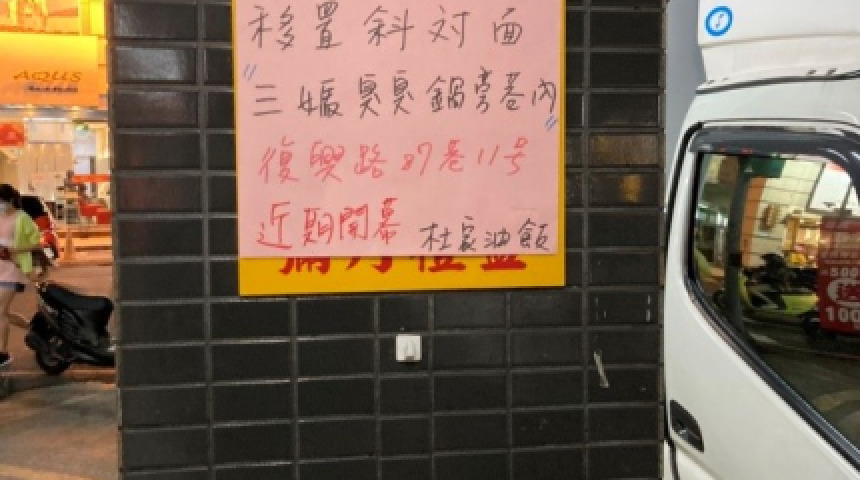 AQUS
移置斜対面
"三媽臭臭鍋旁巷內"
復興路87巷11号
近期開幕 杜家油飯
滿月禮盒
500
100